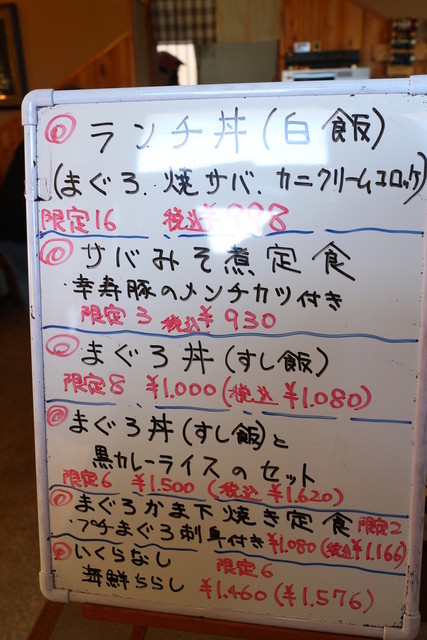 ◎ランチ丼(白飯)
(まぐろ、焼サバ、カニクリームコロッケ)
限定16 税込¥998
◎サバみそ煮定食
・幸寿豚のメンチカツ付き
限定3 税込¥930
◎まぐろ丼(すし飯)
限定8 ¥1.000(税込¥1.080)
◎まぐろ丼(すし飯)と
黒カレーライスのセット
限定6 ¥1.500(税込¥1.620)
◎まぐろかま下焼き定食 限定2
・プチまぐろ刺身付き ¥1.080(税込¥1.166)
◎いくらなし 限定6
海鮮ちらし ¥1.460(¥1.576)